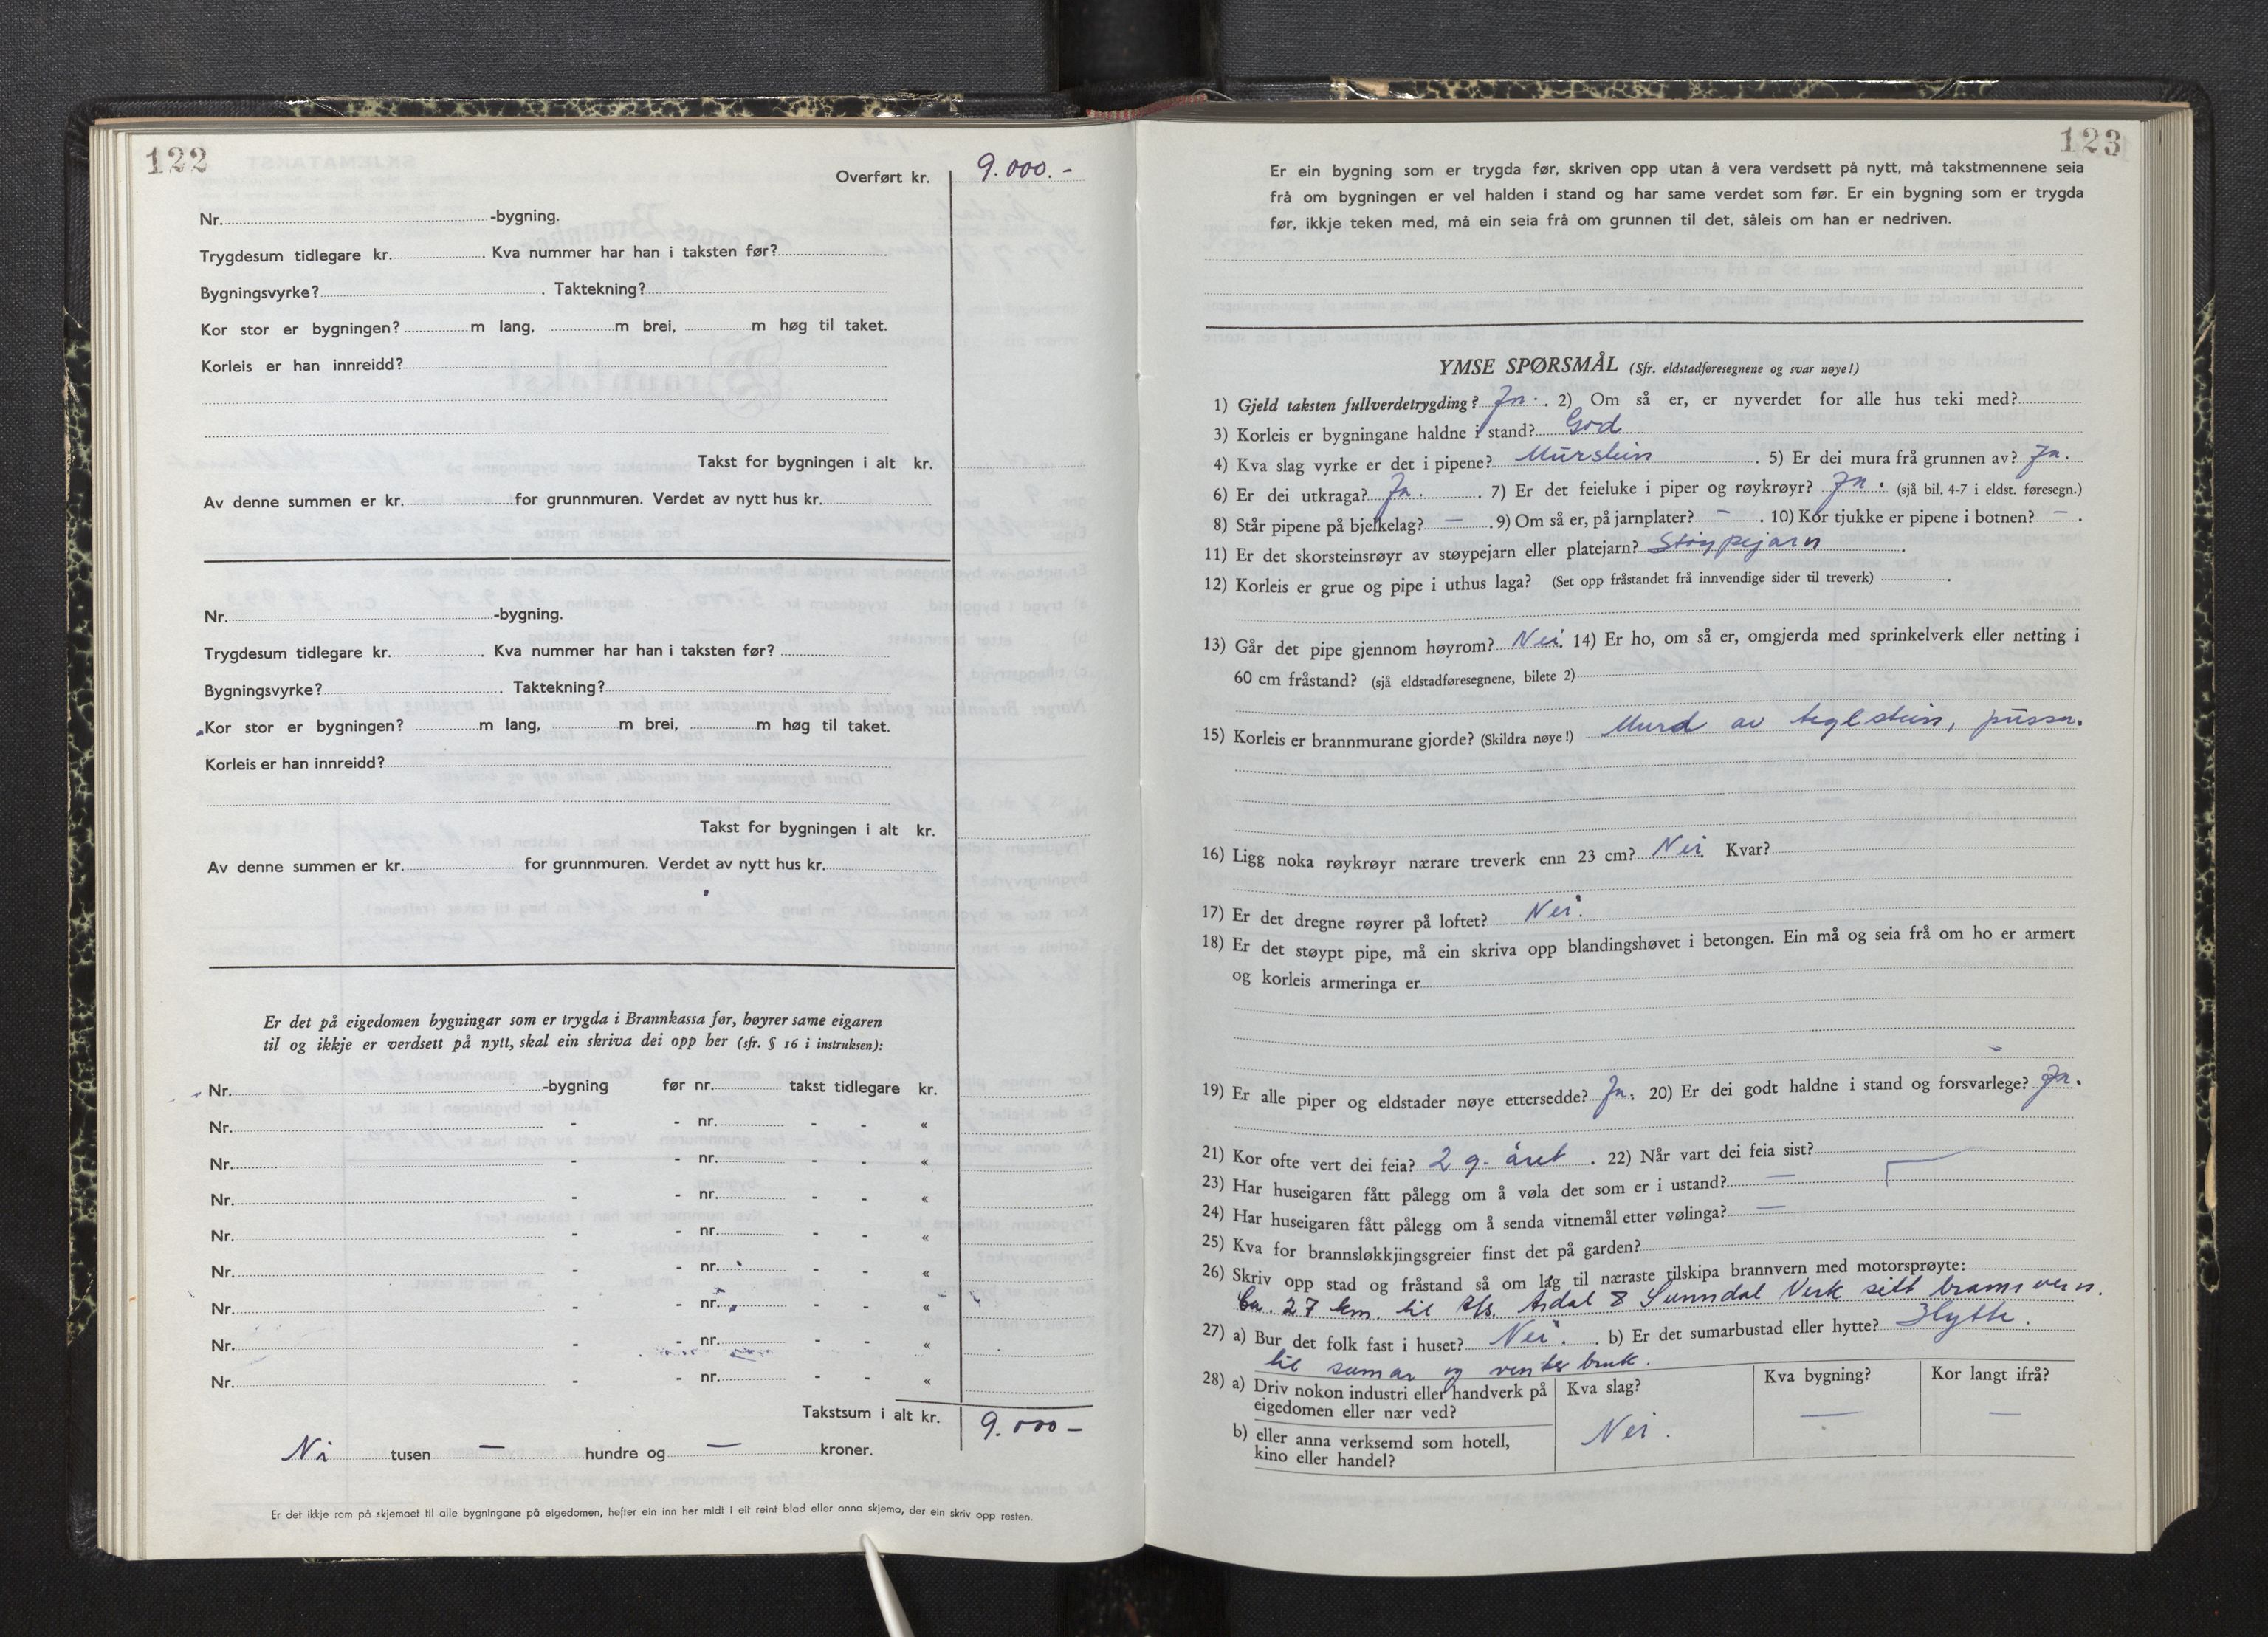 122
Overført kr. 9.000.-
Nr. -bygning.
Trygdesum tidlegare kr. . Kva nummer har han i taksten før?
Bygningsvyrke? . Taktekning?
Kor stor er bygningen? m lang, m brei, m høg til taket.
Korleis er han innreidd?
Takst for bygningen i alt kr.
Av denne summen er kr. for grunnmuren. Verdet av nytt hus kr.
Nr. -bygning.
Trygdesum tidlegare kr. . Kva nummer har han i taksten før?
Bygningsvyrke? . Taktekning?
Kor stor er bygningen? m lang, m brei, m høg til taket.
Korleis er han innreidd?
Takst for bygningen i alt kr.
Av denne summen er kr. for grunnmuren. Verdet av nytt hus kr.
Er det på eigedomen bygningar som er trygda i Brannkassa før, høyrer same eigaren
til og ikkje er verdsett på nytt, skal ein skriva dei opp her (sfr. § 16 i instruksen):
Nr. -bygning før nr. takst tidlegare kr.
Nr. - - nr. - - «
Nr. - - nr. - - «
Nr. - - nr. - - «
Nr. - - nr. - - «
Nr. - - nr. - - «
Nr. - - nr. - - «
Nr. - - nr. - - «
Nr. - - nr. - - «
Takstsum i alt kr. 9.000 –
Ni tusen — hundre og — kroner.
Er det ikkje rom på skjemaet til alle bygningane på eigedomen, hefter ein inn her midt i eit reint blad eller anna skjema, der ein skriv opp resten.
123
Er ein bygning som er trygda før, skriven opp utan å vera verdsett på nytt, må takstmennene seia
frå om bygningen er vel halden i stand og har same verdet som før. Er ein bygning som er trygda
før, ikkje teken med, må ein seia frå om grunnen til det, såleis om han er nedriven.
YMSE SPØRSMÅL (Sfr. eldstadføresegnene og svar nøye!)
1) Gjeld taksten fullverdetrygding? Ja. . 2) Om så er, er nyverdet for alle hus teki med?
3) Korleis er bygningane haldne i stand? God
4) Kva slag vyrke er det i pipene? Murstein . 5) Er dei mura frå grunnen av? Ja.
6) Er dei utkraga? Ja. . 7) Er det feieluke i piper og røykrøyr? Ja. (sjå bil. 4-7 i eldst. føresegn.)
8) Står pipene på bjelkelag? — . 9) Om så er, på jarnplater? — . 10) Kor tjukke er pipene i botnen? — .
11) Er det skorsteinsrøyr av støypejarn eller platejarn? Støypejarn .
12) Korleis er grue og pipe i uthus laga? (Set opp fråstandet frå innvendige sider til treverk) .
13) Går det pipe gjennom høyrom? Nei. 14) Er ho, om så er, omgjerda med sprinkelverk eller netting i
60 cm fråstand? (sjå eldstadføresegnene, bilete 2)
15) Korleis er brannmurane gjorde? (Skildra nøye!) Murd av teglstein, pussa.
16) Ligg noka røykrøyr nærare treverk enn 23 cm? Nei. Kvar?
17) Er det dregne røyrer på loftet? Nei.
18) Er det støypt pipe, må ein skriva opp blandingshøvet i betongen. Ein må og seia frå om ho er armert
og korleis armeringa er
19) Er alle piper og eldstader nøye ettersedde? Ja. 20) Er dei godt haldne i stand og forsvarlege? Ja.
21) Kor ofte vert dei feia? 2 g. året . 22) Når vart dei feia sist?
23) Har huseigaren fått pålegg om å vøla det som er i ustand? —
24) Har huseigaren fått pålegg om å senda vitnemål etter vølinga? —
25) Kva for brannsløkkjingsgreier finst det på garden?
26) Skriv opp stad og fråstand så om lag til næraste tilskipa brannvern med motorsprøyte:
Ca. 27 km. til A/s. Årdal & Sunndal Verk sitt brannvern.
27) a) Bur det folk fast i huset? Nei. . b) Er det sumarbustad eller hytte? Hytte.
til sumar og venter bruk.
28) a) Driv nokon industri eller handverk på
eigedomen eller nær ved?
b) eller anna verksemd som hotell,
kino eller handel?
Kva slag?
Nei.
Kva bygning?
—
Kor langt ifrå?
—